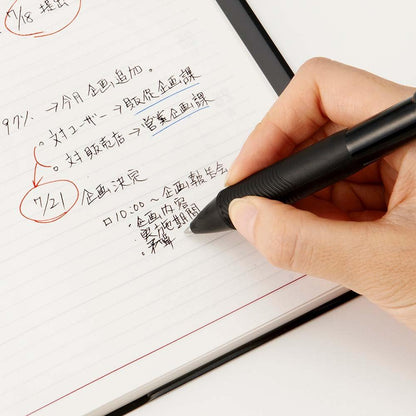 7/18 提出
97% →今月企画追加。
。対ユーザー→販促企画課
。対販売店→営業企画課
7/21 企画決定
□10:00～企画報告会
・企画内容
・実地期間
・予算